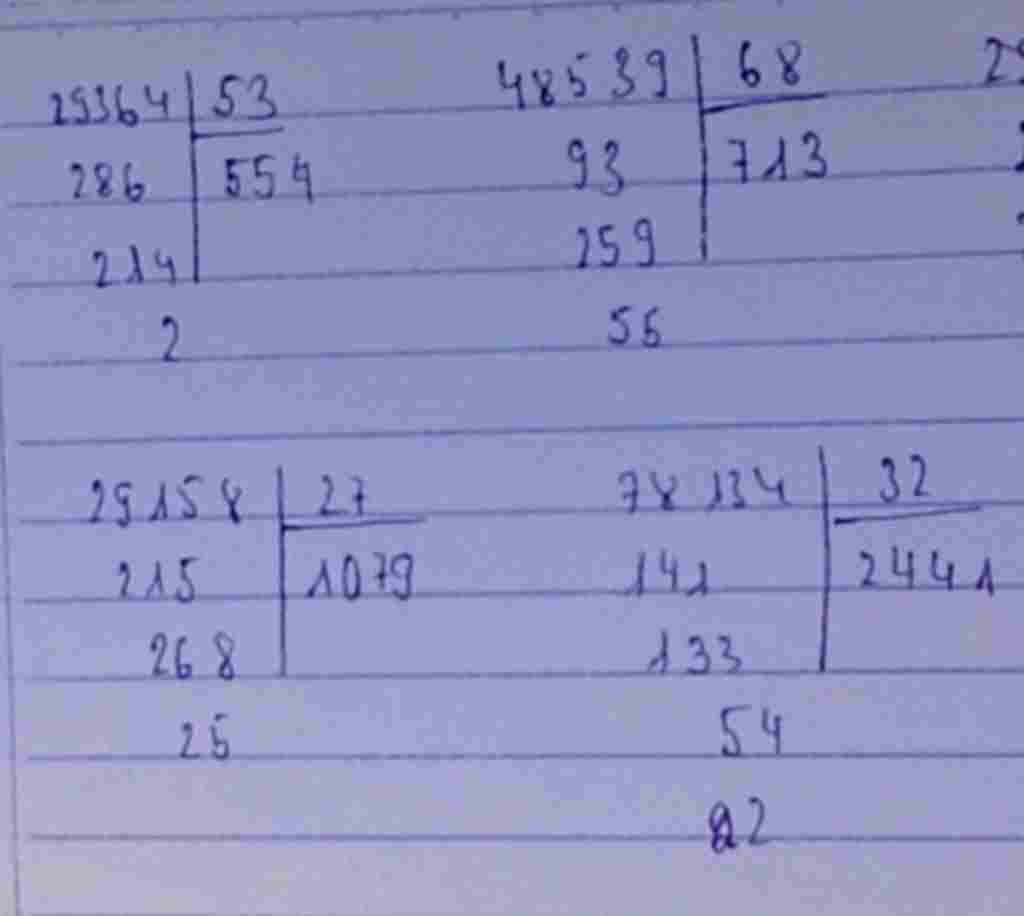 29364 53 48539 68 29
286 554 93 713
214 259
2 55
29158 27 78134 32
215 1079 141 2441
268 133
25 54
22